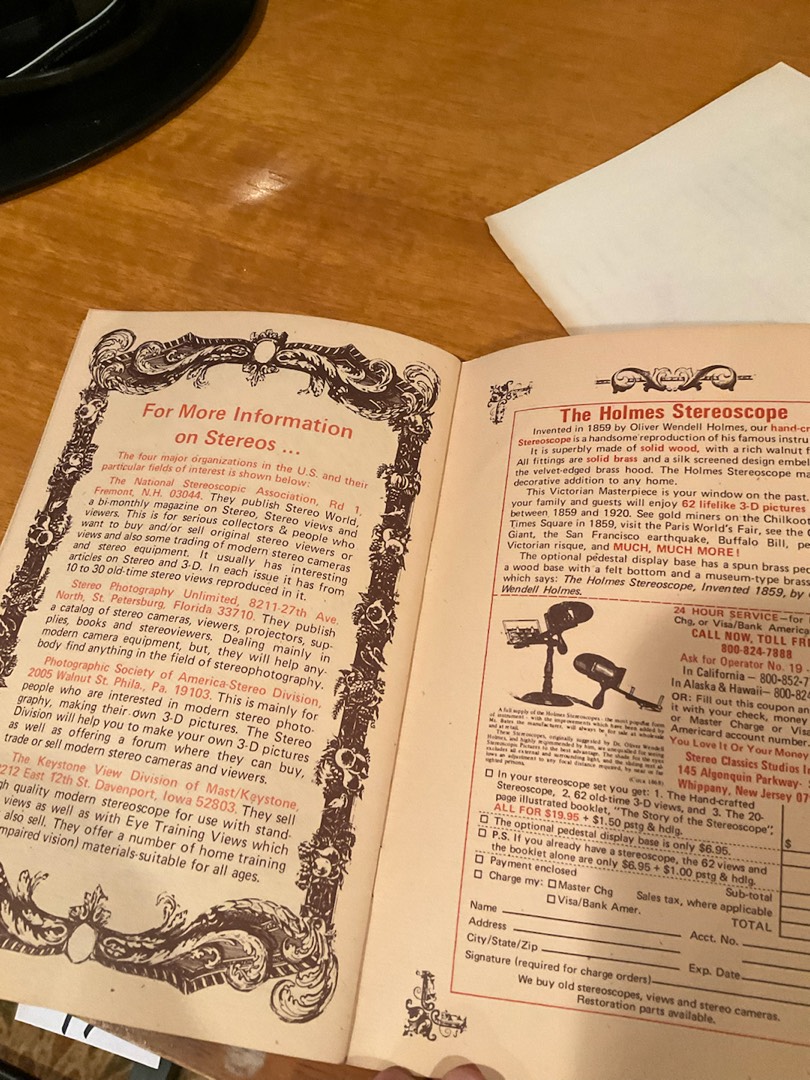 For More Information
on Stereos ...
The four major organizations in the U.S. and their
particular fields of interest is shown below:
The National Stereoscopic Association, Rd 1,
Fremont, N.H. 03044. They publish Stereo World,
a bi-monthly magazine on Stereo, Stereo views and
viewers. This is for serious collectors & people who
want to buy and/or sell original stereo viewers or
views and also some trading of modern stereo cameras
and stereo equipment. It usually has interesting
articles on Stereo and 3-D. In each issue it has from
10 to 30 old-time stereo views reproduced in it.
Stereo Photography Unlimited, 8211-27th Ave.
North, St. Petersburg, Florida 33710. They publish
a catalog of stereo cameras, viewers, projectors, sup-
plies, books and stereoviewers. Dealing mainly in
modern camera equipment, but, they will help any-
body find anything in the field of stereophotography.
Photographic Society of America-Stereo Division,
2005 Walnut St. Phila., Pa. 19103. This is mainly for
people who are interested in modern stereo photo-
graphy, making their own 3-D pictures. The Stereo
Division will help you to make your own 3-D pictures
as well as offering a forum where they can buy,
trade or sell modern stereo cameras and viewers.
The Keystone View Division of Mast/Keystone,
2212 East 12th St. Davenport, Iowa 52803. They sell
gh quality modern stereoscope for use with stand-
views as well as with Eye Training Views which
also sell. They offer a number of home training
mpaired vision) materials-suitable for all ages.
The Holmes Stereoscope
Invented in 1859 by Oliver Wendell Holmes, our hand-cr
Stereoscope is a handsome reproduction of his famous instru
It is superbly made of solid wood, with a rich walnut f
All fittings are solid brass and a silk screened design embel
the velvet-edged brass hood. The Holmes Stereoscope ma
decorative addition to any home.
This Victorian Masterpiece is your window on the past
your family and guests will enjoy 62 lifelike 3-D pictures
between 1859 and 1920. See gold miners on the Chilkoo
Times Square in 1859, visit the Paris World's Fair, see the
Giant, the San Francisco earthquake, Buffalo Bill, pe
Victorian risque, and MUCH, MUCH MORE!
The optional pedestal display base has a spun brass pe
a wood base with a felt bottom and a museum-type bras
which says: The Holmes Stereoscope, Invented 1859, by
Wendell Holmes.
24 HOUR SERVICE—for
Chg, or Visa/Bank America
CALL NOW, TOLL FR
800-824-7888
Ask for Operator No. 19
In California — 800-852-7
In Alaska & Hawaii— 800-82
OR: Fill out this coupon an
it with your check, money
or Master Charge or Visa
Americard account number
You Love It Or Your Money
Stereo Classics Studios In
145 Algonquin Parkway-
Whippany, New Jersey 07
A full supply of the Holmes Stereoscopes - the most popular form
of instrument - with the improvements which have been added by
Mr. Bates the manufacturer, will always be for sale at wholesale
and at retail.
These Stereoscopes, originally suggested by Dr. Oliver Wendell
Holmes, and highly recommended by him, are expended for
Stereoscopic Pictures to the best advantage. The shade for the eyes
excludes all external and disturbing light, and the sliding rest al-
lows an adjustment to any focal distance required, by near or far
sighted persons.
(Circa 1869)
In your stereoscope set you get: 1. The Hand-crafted
Stereoscope, 2. 62 old-time 3-D views, and 3. The 20-
page illustrated booklet, "The Story of the Stereoscope",
ALL FOR $19.95 + $1.50 pstg & hdlg.
The optional pedestal display base is only $6.95.
P.S. If you already have a stereoscope, the 62 views and
the booklet alone are only $6.95 + $1.00 pstg & hdlg.
$
Payment enclosed
Sub-total
Charge my: Master Chg Sales tax, where applicable
Visa/Bank Amer. TOTAL
Name
Address Acct. No.
City/State/Zip
Signature (required for charge orders) Exp. Date
We buy old stereoscopes, views and stereo cameras.
Restoration parts available.